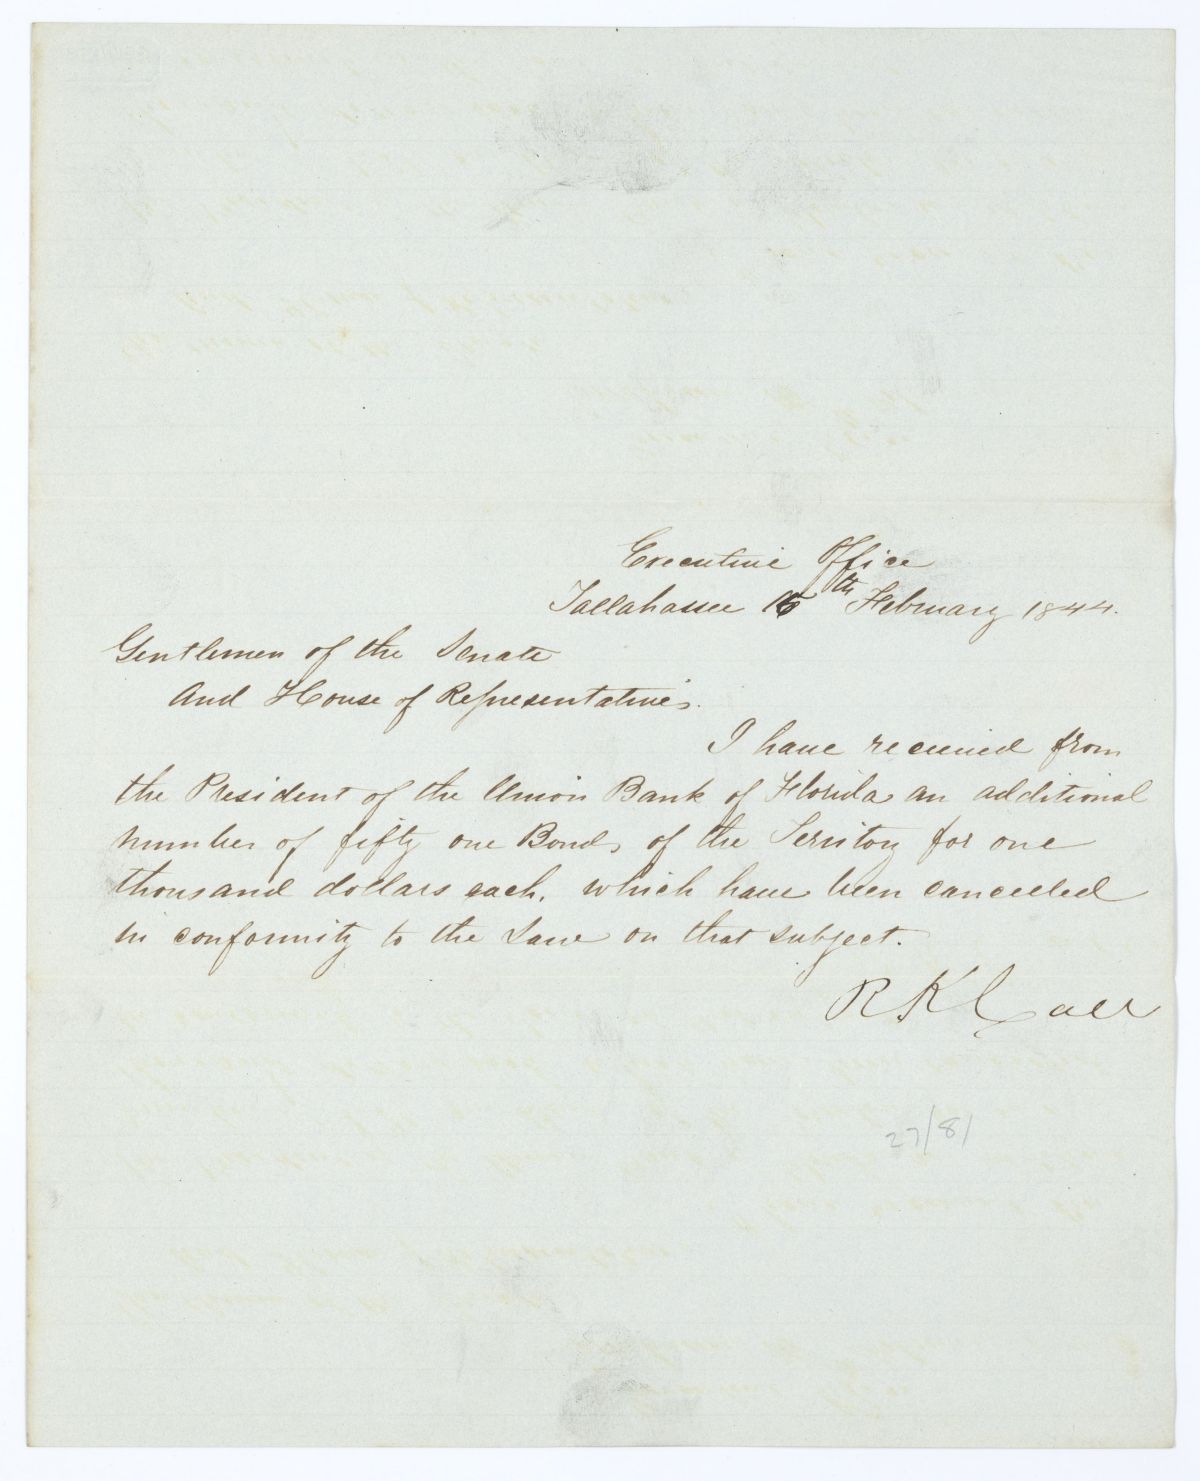 Executive Office
Tallahassee 16th February 1844.
Gentlemen of the Senate
And House of Representatives.
I have received from
the President of the Union Bank of Florida an additional
number of fifty one Bonds of the Territory for one
thousand dollars each, which have been cancelled
in conformity to the Law on that subject.
R K Call
27/81